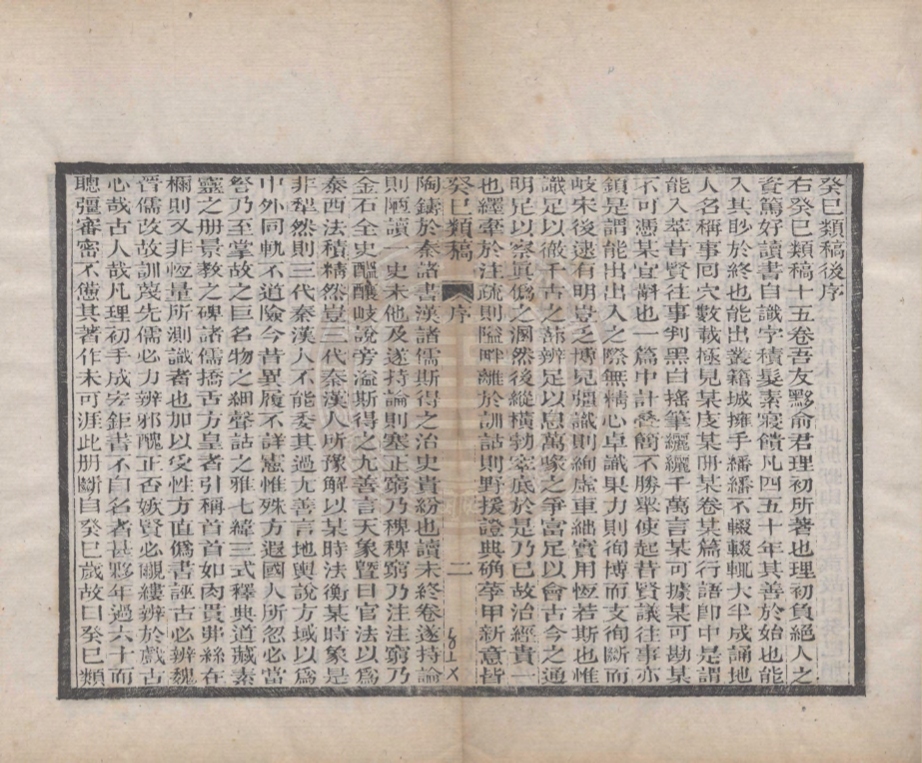 癸巳類稿後序
右癸巳類稿十五卷吾友黟俞君理初所著也理初負絕人之
資篤好讀書自識字積髮素寢饋凡四五十年其善於始也能
入其眇於終也能出叢籍城擁手繙繙不輟輟輒大半成誦地
人名稱事回穴數載極見某庋某開某卷某篇行語即中是謂
能入萃昔賢往事判黑白搖筆纚纚千萬言某可據某可勘某
不可憑某宜斠也一篇中計疊簡不勝舉使起昔賢議往事亦
鎖是謂能出出入之際無精心卓識果力則徇博而支徇斷而
岐宋後逮有明豈乏博見彊識則絢虛車絀實用恆若斯也惟
識足以徹千古之蔀辨足以息萬喙之爭富足以會古今之通
明足以察真僞之溷然後縱橫勃窣底於是乃已故治經貴一
也纆牽於注疏則隘畔離於訓詁則野援證典确莩甲新意皆
癸巳類稿 序 二
陶鑄於秦諸書漢諸儒斯得之治史貴紛也讀未終卷遂持論
則陋讀一史未他及遂持論則塞正窮乃稗稗窮乃注注窮乃
金石全史醞釀岐說旁溢斯得之尢善言天象曁日官法以爲
泰西法積精然豈三代秦漢人所豫解以某時法衡某時象是
非犁然則三代秦漢人不能委其過尢善言地輿說方域以爲
中外同軌不道險今昔異履不詳憲惟殊方遐國人所忽必當
咎乃至掌故之巨名物之細聲詁之雅七緯三式釋典道藏素
靈之册景教之碑諸儒撟舌方皇者引稱首首如肉貫丳絲在
檷則又非恆量所測識者也加以受性方直僞書誣古必辨魏
晉儒改故訓蔑先儒必力辨邪醜正否嫉賢必覼縷辨於戲古
心哉古人哉凡理初手成宏鉅書不自名者甚夥年過六十而
聰彊審密不憊其著作未可涯此册斷自癸巳歲故曰癸巳類